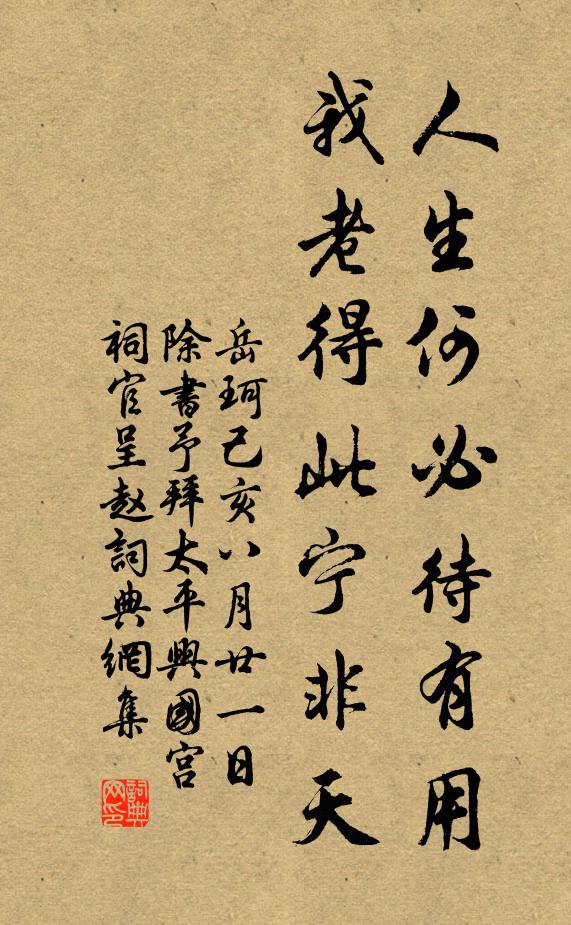 人生何必待有用
我老得此宁非天
岳珂己亥八月廿一日
除書予拜太平興國宫
祠官呈赵詞典網集
詞典网印